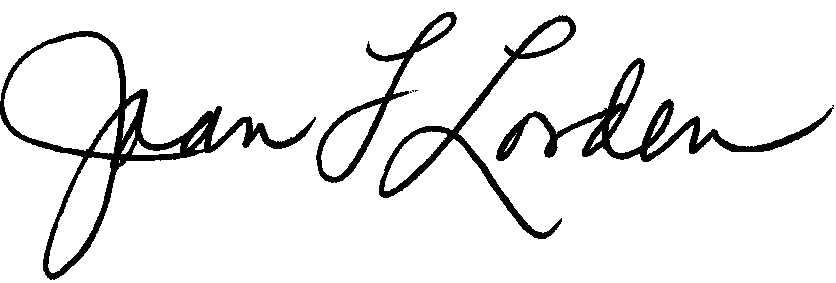 Joan F Lorden